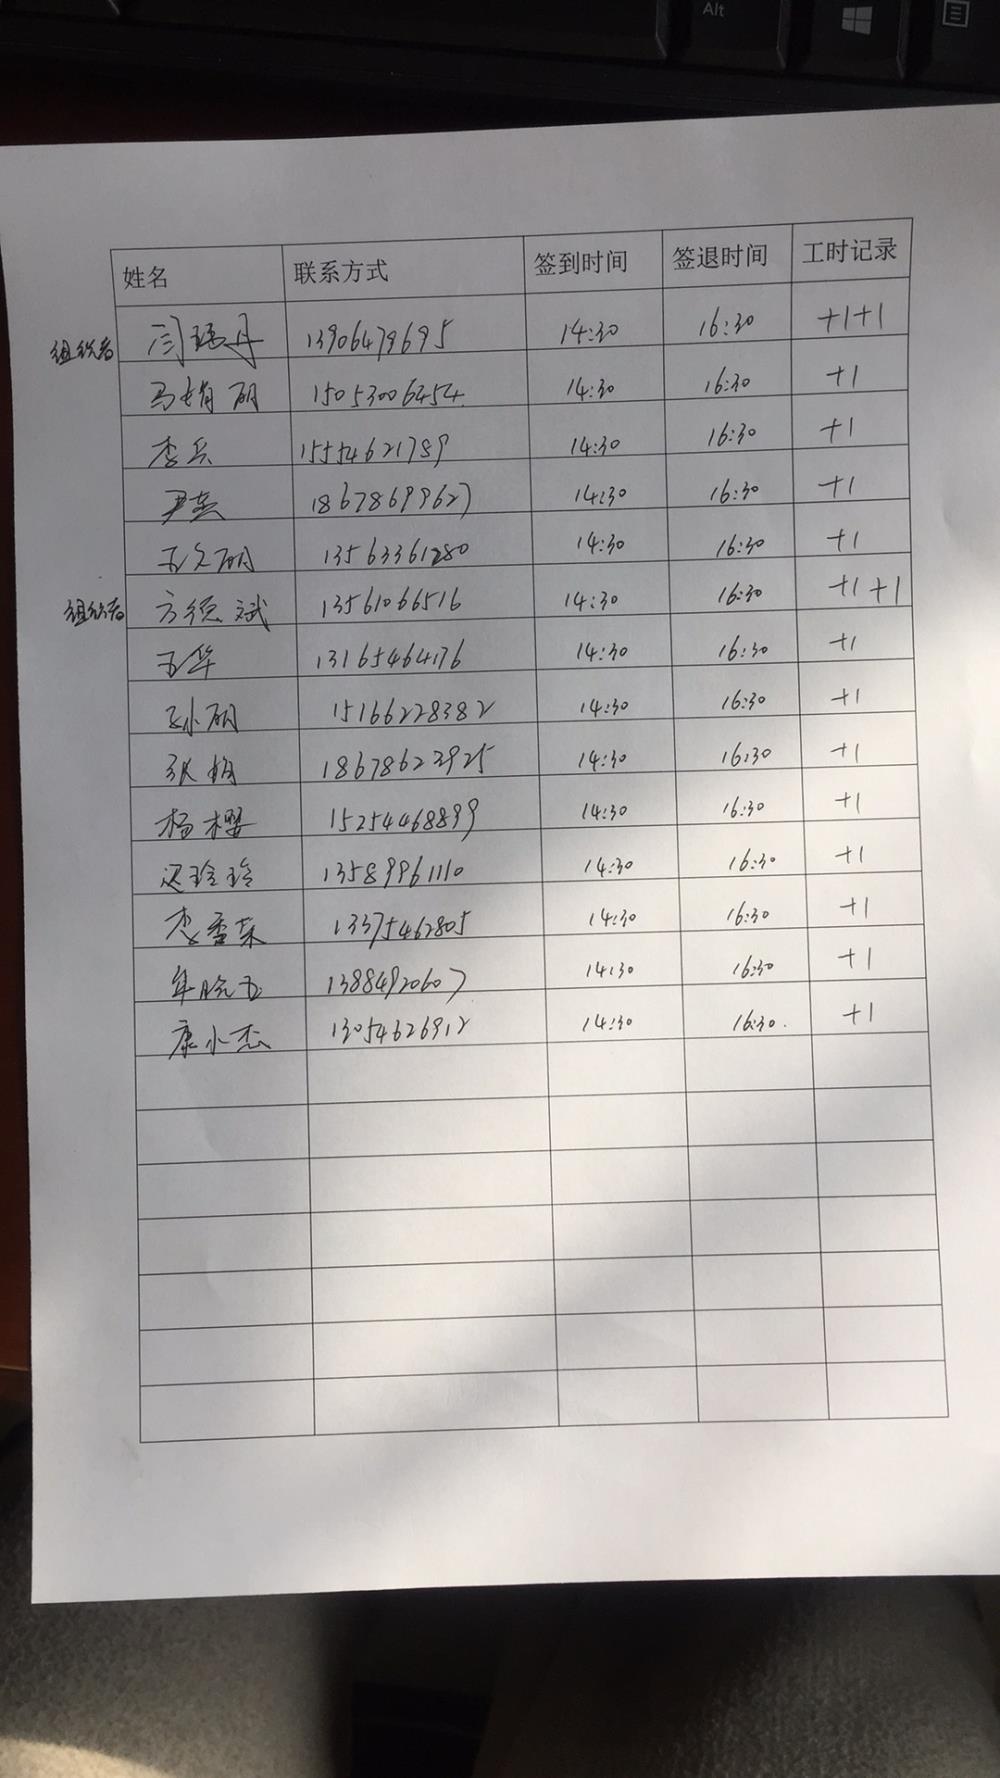 Alt
姓名 联系方式 签到时间 签退时间 工时记录
组织者 闫瑶丹 13906479695 14:30 16:30 +1+1
马娟丽 15053006454 14:30 16:30 +1
李兵 15554621789 14:30 16:30 +1
尹英 18678699627 14:30 16:30 +1
王文丽 13563361280 14:30 16:30 +1
组织者 方德斌 13561066516 14:30 16:30 +1+1
王华 13165464176 14:30 16:30 +1
孙小丽 15166228382 14:30 16:30 +1
张梅 18678623925 14:30 16:30 +1
杨樱 15254468899 14:30 16:30 +1
迟玲玲 13589961110 14:30 16:30 +1
李香荣 13375462805 14:30 16:30 +1
年晓玉 13884920607 14:30 16:30 +1
康小杰 13054626912 14:30 16:30 +1